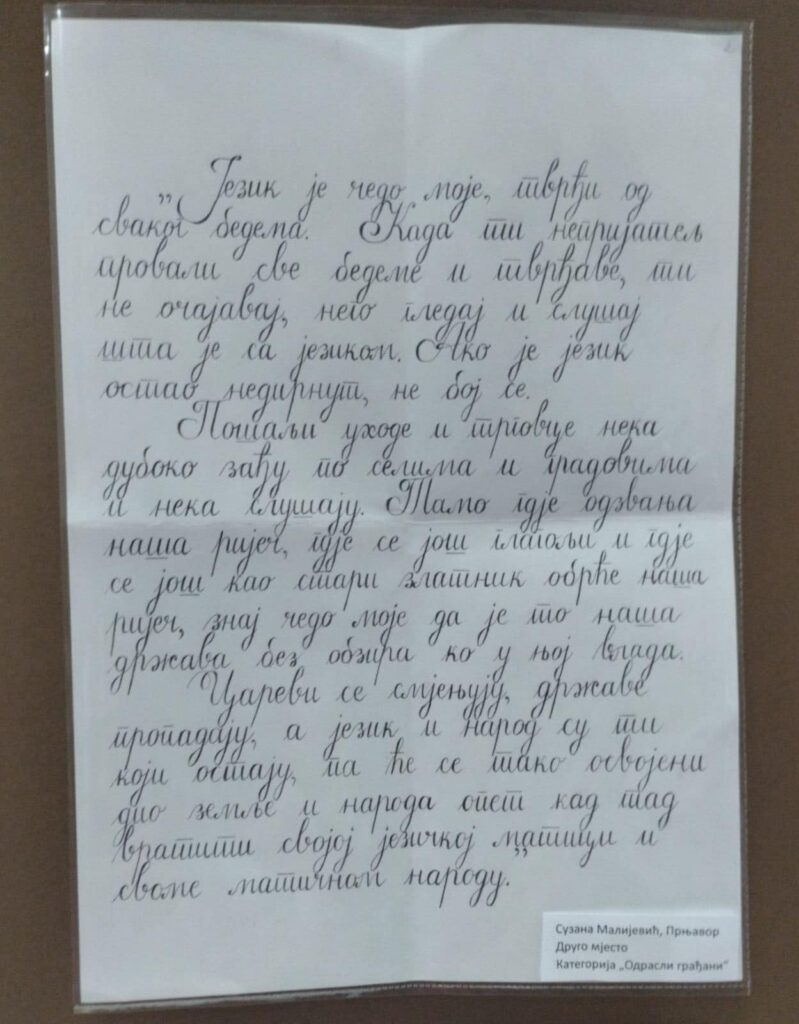 „Језик је чедо моје, тврђи од
сваког бедема. Када ти непријатељ
провали све бедеме и тврђаве, ти
не очајавај, него гледај и слушај
шта је са језиком. Ако је језик
остао недирнут, не бој се.
Пошаљи уходе и трговце нека
дубоко зађу по селима и градовима
и нека слушају. Тамо гдје одзвања
наша ријеч, гдје се још глагољи и гдје
се још као стари златник обрће наша
ријеч, знај чедо моје да је то наша
држава без обзира ко у њој влада.
Цареви се смјењују, државе
пропадају, а језик и народ су ти
који остају, па ће се тако освојени
дио земље и народа опет кад тад
вратити својој језичкој матици и
своме матичном народу.”
Сузана Малијевић, Прњавор
Друго мјесто
Категорија „Одрасли грађани“